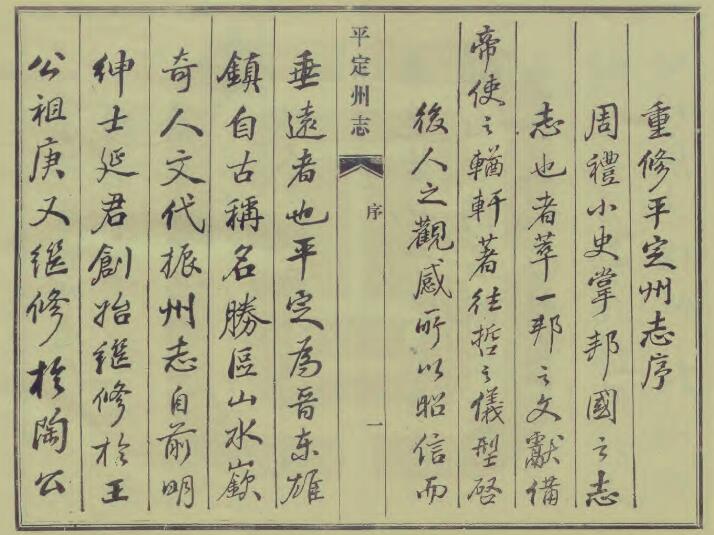 重修平定州志序
周禮小史掌邦國之志
志也者萃一邦之文獻備
帝使之輶軒著往哲之儀型啓
後人之觀感所以昭信而
平定州志
序
一
垂遠者也平定為晉東雄
鎮自古稱名勝區山水嶔
奇人文代振州志自前明
紳士延君創始繼修於王
公祖庚又繼修於陶公